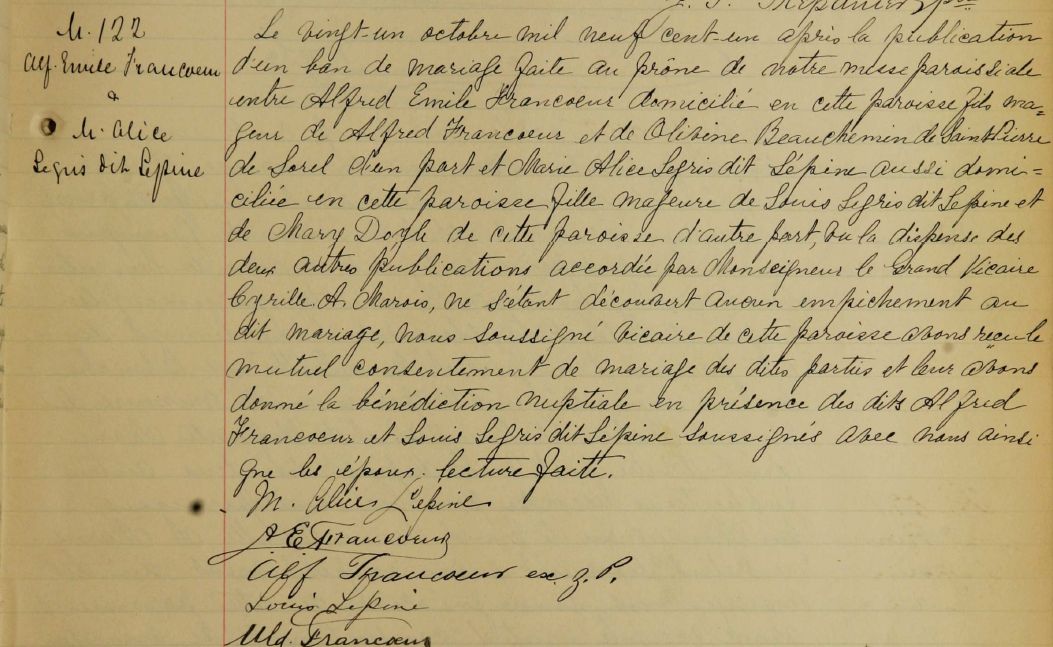 M. 122
Alf. Emile Francoeur
&
M. Alice
Legris dit Lépine
Le vingt-un octobre mil neuf cent-un après la publication
d'un ban de mariage faite au prône de notre messe paroissiale
entre Alfred Emile Francoeur domicilié en cette paroisse fils ma-
geur de Alfred Francoeur et de Olivine Beauchemin de Saint-Pierre
de Sorel d'un part et Marie Alice Legris dit Lépine aussi domi-
ciliée en cette paroisse fille majeure de Louis Legris dit Lépine et
de Mary Doyle de cette paroisse d'autre part, vu la dispense des
deux autres publications accordée par Monseigneur le Grand Vicaire
Cyrille A. Marois, ne s'étant découvert aucun empichement au
dit mariage, nous soussigné vicaire de cette paroisse avons recu le
mutuel consentement de mariage des dites parties et leur avons
donné la bénédiction nuptiale en présence des dits Alfred
Francoeur et Louis Legris dit Lépine soussignés avec nous ainsi
que les époux. lecture faite.
M. Alice Lepine
A E Francoeur
Alf Francoeur ex. z. P.
Louis Lepine
Uld. Francoeur